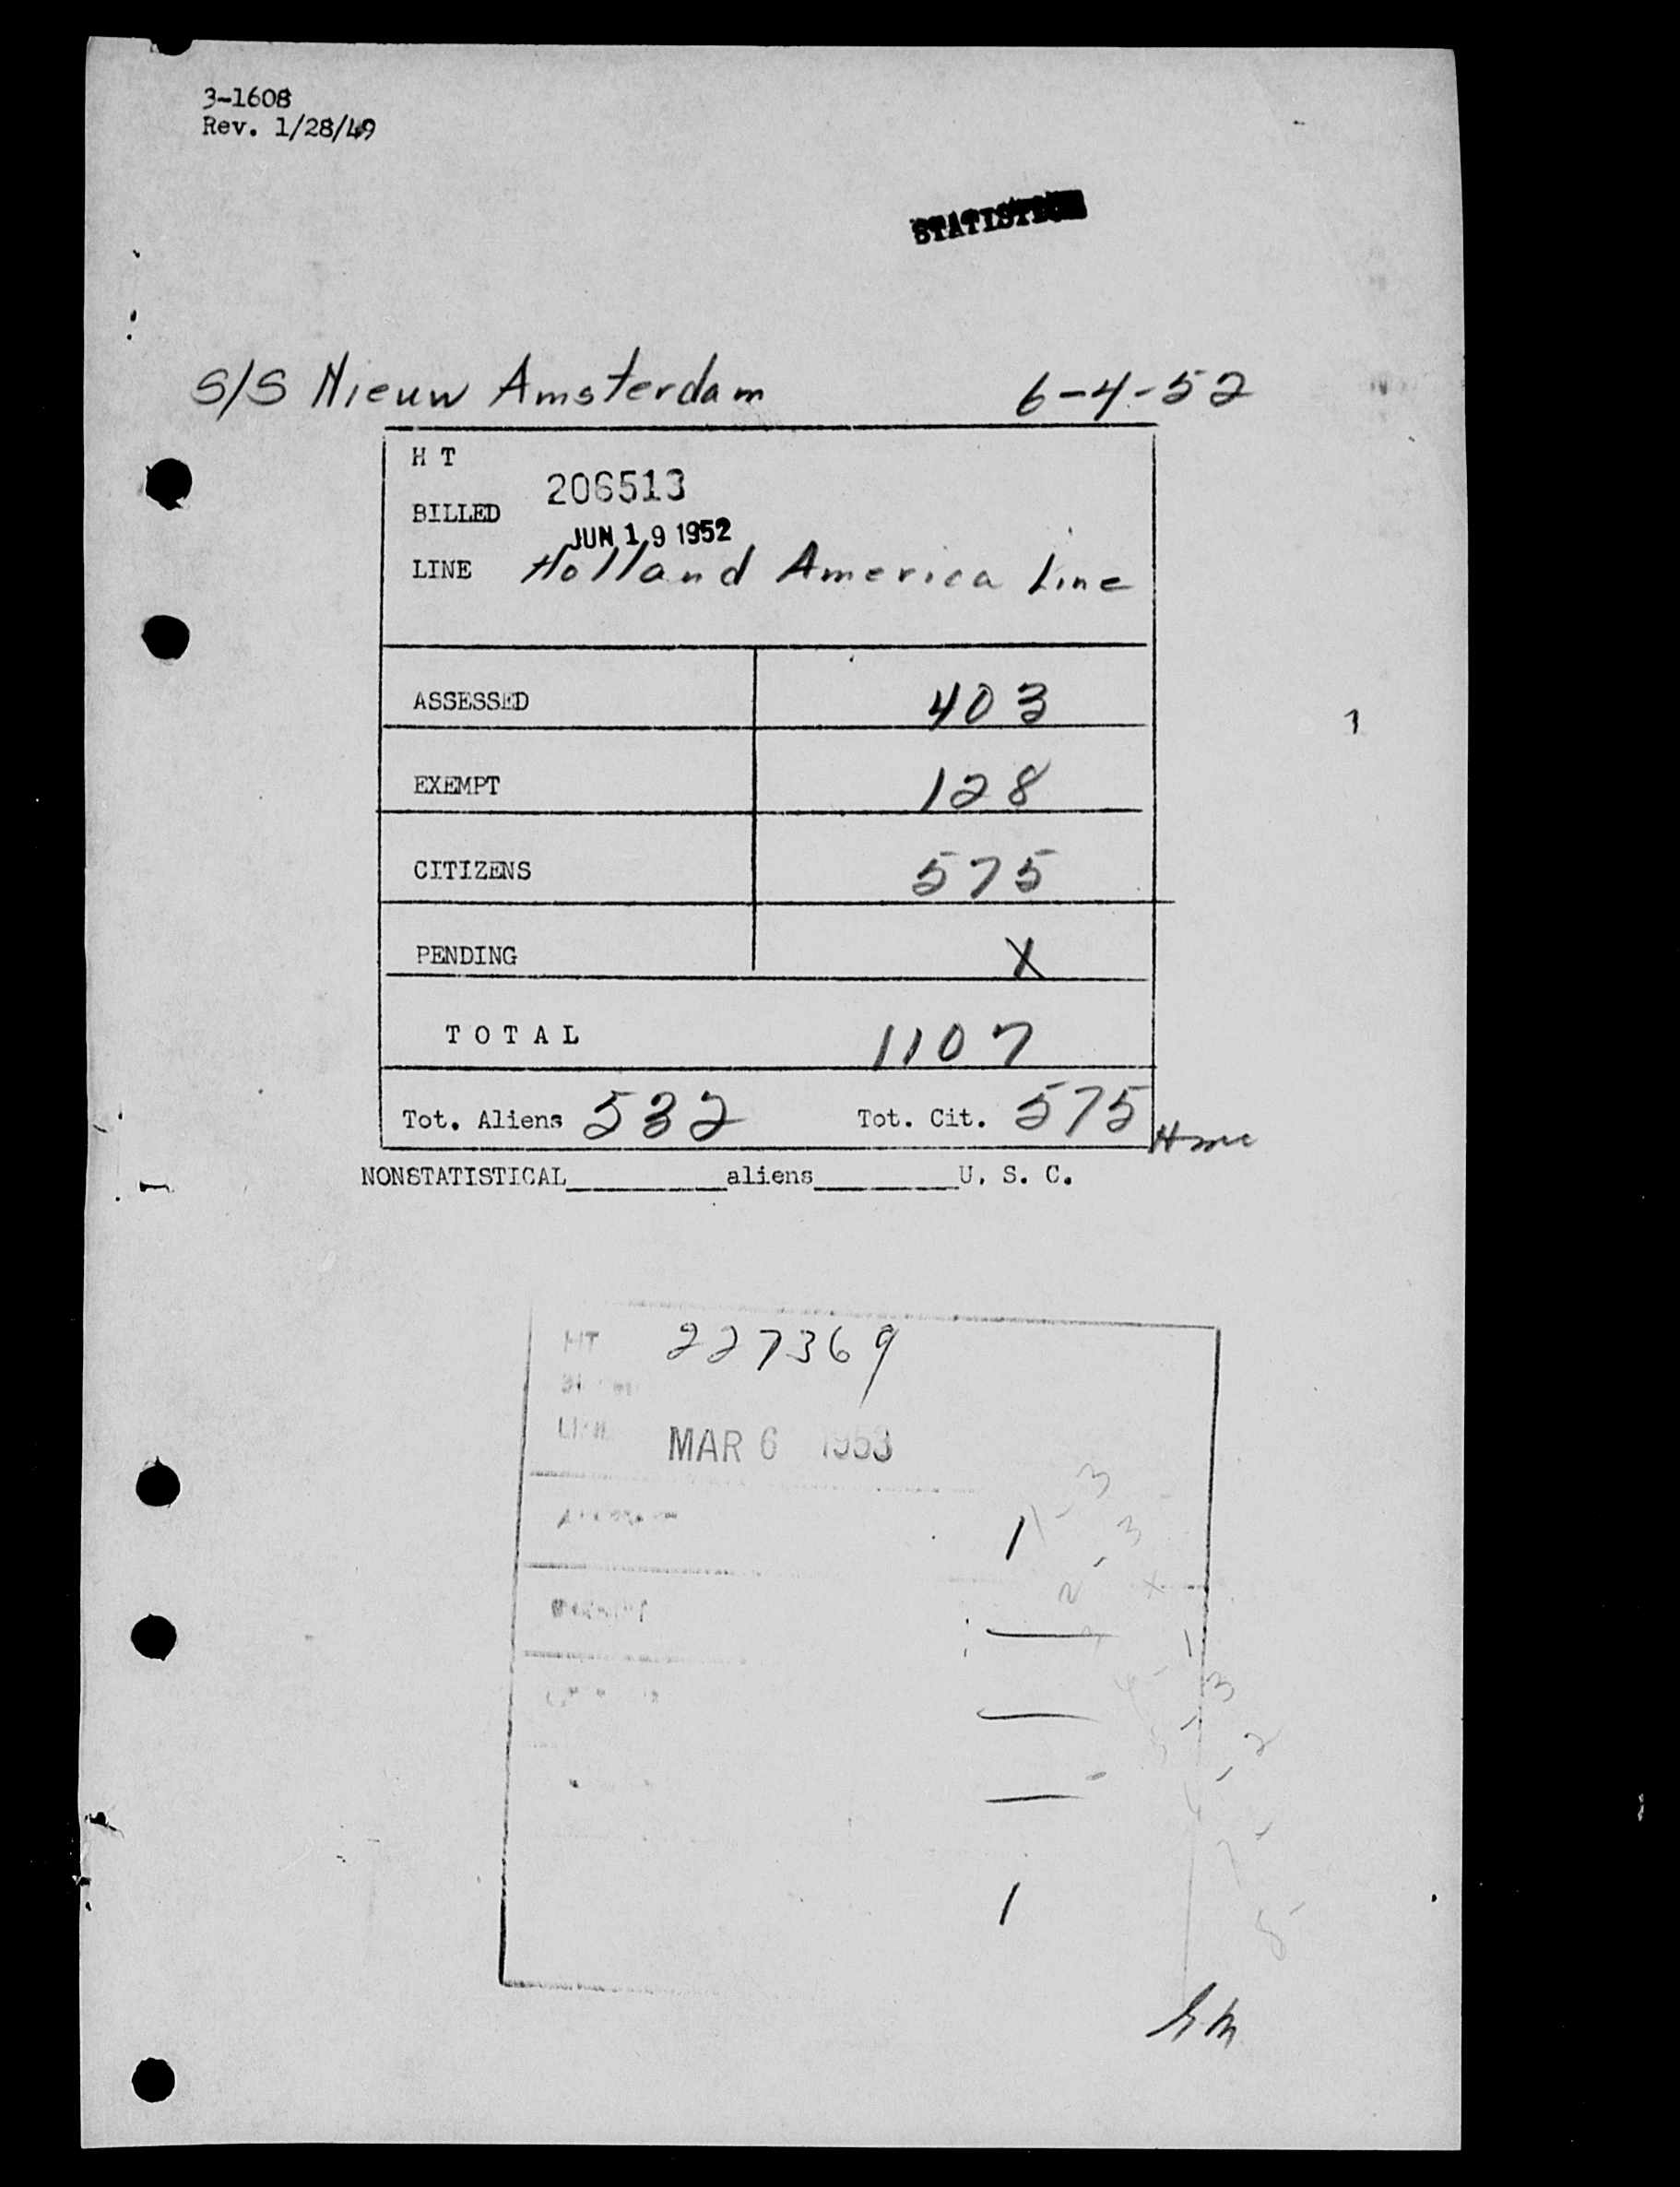 3-1608
Rev. 1/28/49
S/S Nieuw Amsterdam 6-4-52
H T
206513
BILLED
JUN 19 1952
LINE Holland America Line
ASSESSED 403
1
EXEMPT 128
CITIZENS 575
PENDING X
TOTAL 1107
Tot. Aliens 532 Tot. Cit. 575
NONSTATISTICAL________aliens________U. S. C.
HT 227369
MAR 6 1953
3
1
3
2 x
1
3
2
1
8